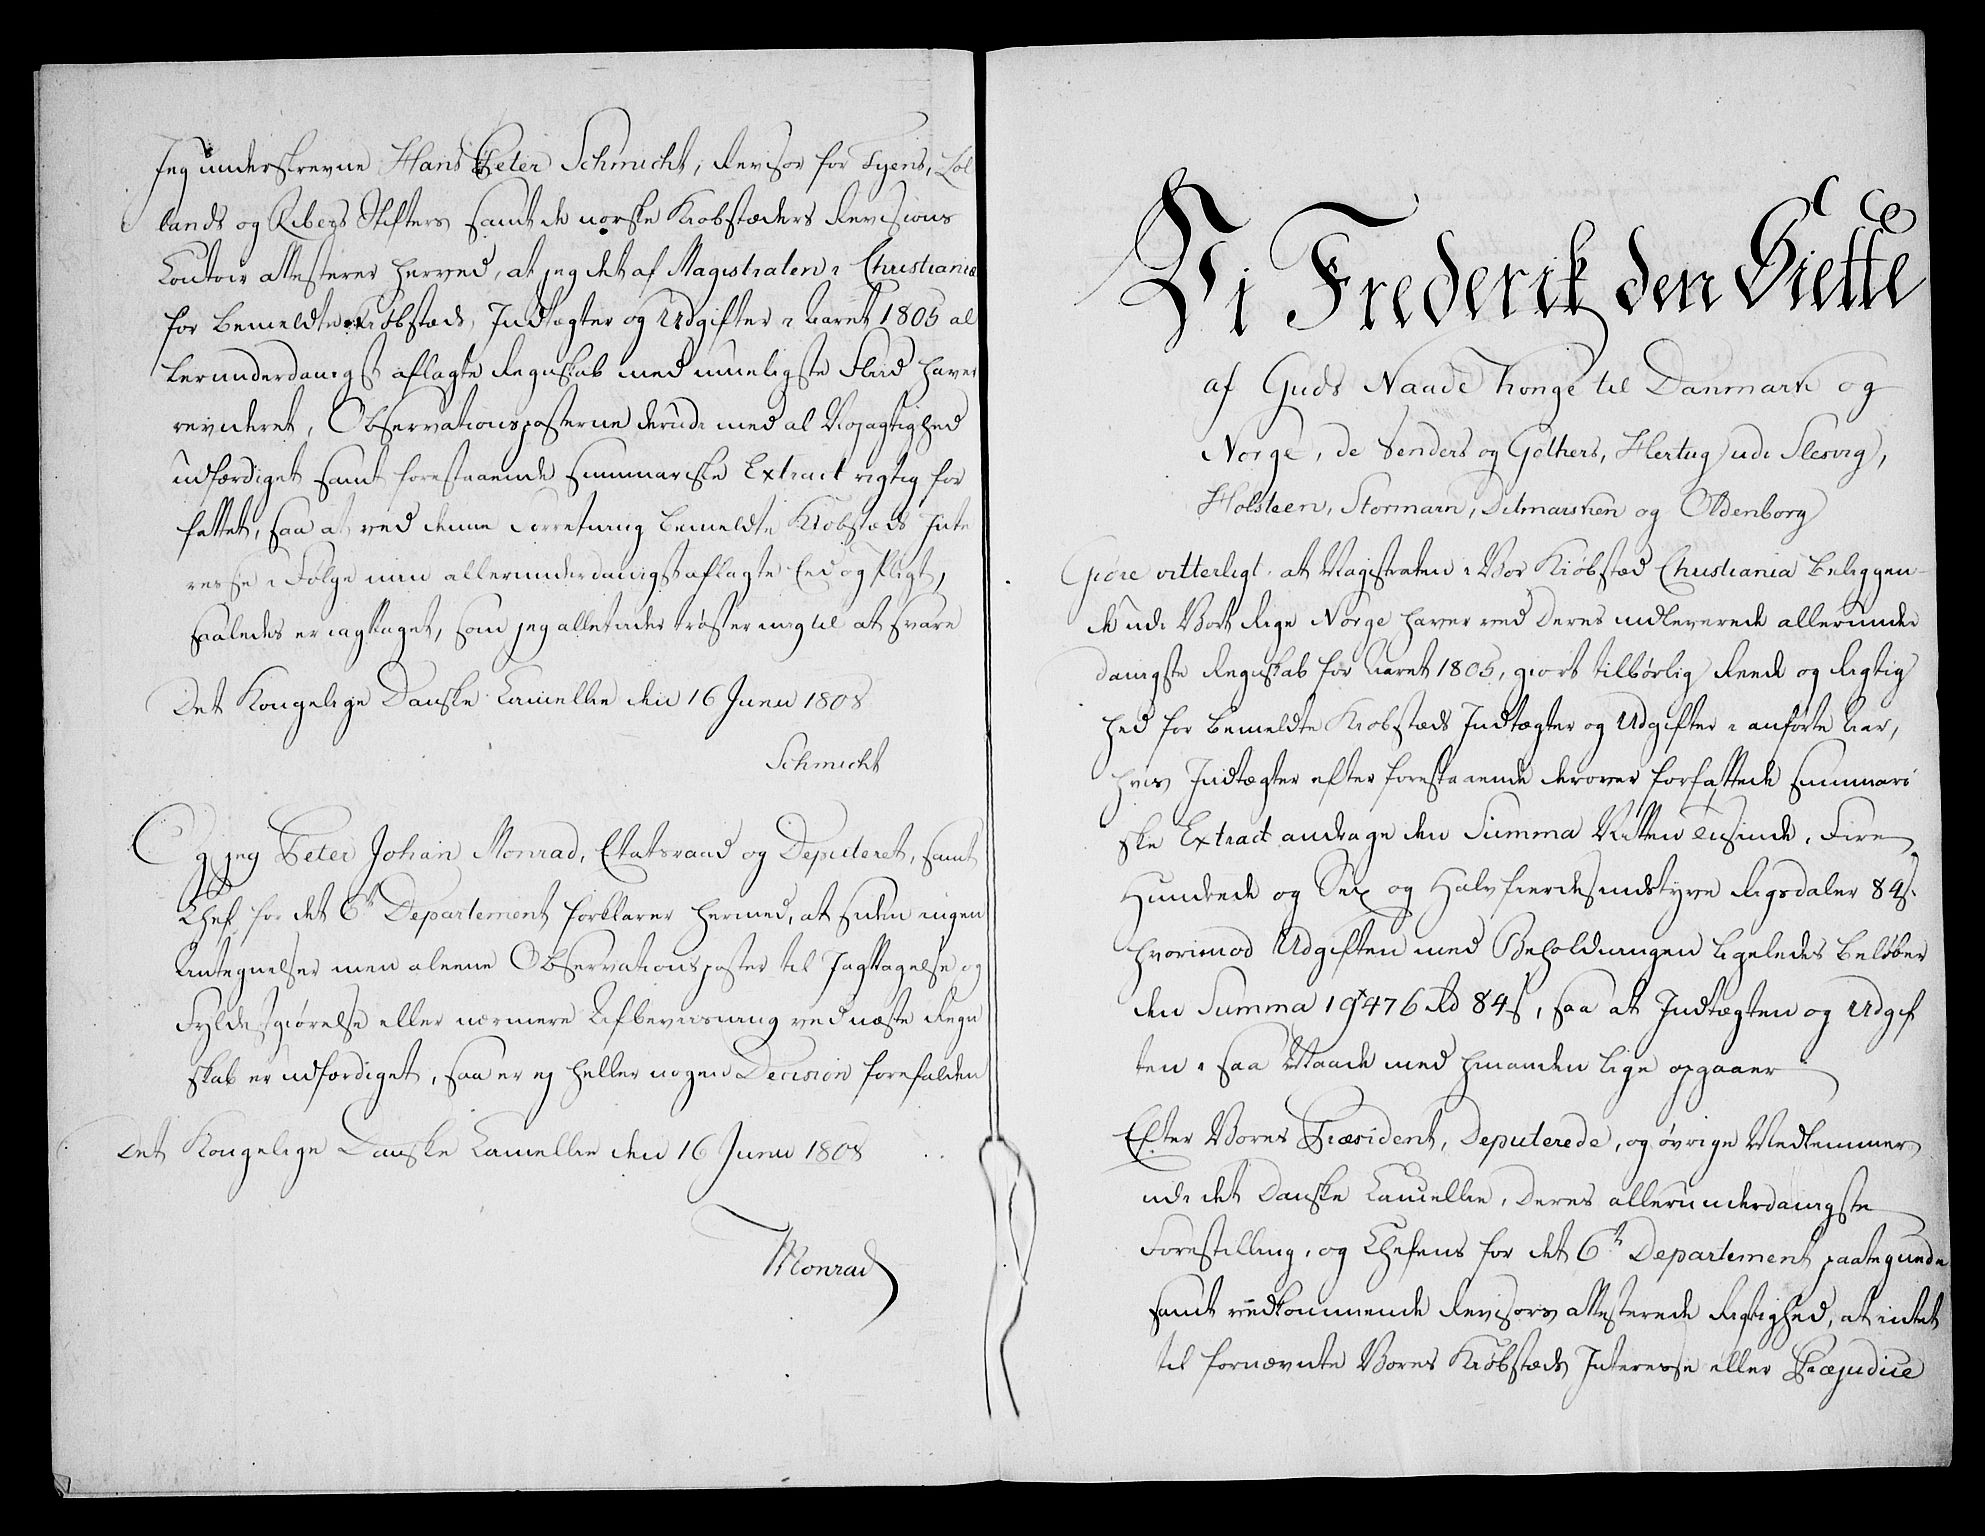 Jeg underskrevne Hans Peter Schmicht, Revisor for Fyens, Lol
lands og Ribers Stifters samt de norske Kiobstæders Revisions
Contoir attesterer herved, at jeg det af Magistraten i Christiania
for bemeldte Kiøbstæds Indtægter og Udgifter i Aaret 1805 al
lerunderdanigst aflagte Regnskab med mueligste Fliid haver
revideret, Observationsposterne derudi med al Nøjagtighed
udfærdiget samt forestaaende summariske Extract rigtig for
fattet, saa at ved denne Forretning bemeldte Kiøbstæds Inte
resse i Følge min allerunderdanigst aflagte Eed og Pligt,
saaledes er iagttaget, som jeg alletider trøster mig til at svare
Det Kongelige Danske Cancellie den 16 Junii 1808
Schmicht
Og jeg Peter Johan Monrad, Etatsraad og Deputeret, samt
Chef for det 6te Departement forklarer hermed, at siden ingen
Antegnelser men aleene Observationsposter til Iagttagelse og
Fyldestgiørelse eller nærmere Afbeviisning ved næste Regn
skab er udfærdiget, saa er ej heller nogen Decision forefalden
Det Kongelige Danske Cancellie den 16 Junii 1808
Monrad
Vi Frederik den Siette
af Guds Naade Konge til Danmark og
Norge, de Venders og Gothers, Hertug udi Slesvig,
Holsteen, Stormarn, Ditmarsken og Oldenborg
Giøre vitterligt at Magistraten i Vor Kiøbstæd Christiania beliggen
de udi Vort Rige Norge haver ved deres indleverede allerunder
danigste Regnskab for Aaret 1805, giort tilbørlig Reede og Rigtig
hed for bemeldte Kiobstæds Indtægter og Udgifter i anførte Aar,
hvis Indtægter efter forestaaende derover forfattede summari
ske Extract andrage den Summa Nitten Tusinde, Fire
Hundrede og Sex og Halvfierdesindstyve Rigsdaler 84 s.
hvorimod Udgiften med Beholdningen ligeledes beløber
den Summa 19476 Rd 84 s, saa at Indtægten og Udgif
ten i saa Maade med hinanden lige opgaaer
Efter Vores Præsident, Deputerede, og øvrige Medlemmer
udi det Danske Cancellie, Deres allerunderdanigste
Forestilling, og Chefens for det 6te Departement paategnede
samt vedkommende Revisors attesterede Rigtighed, at intet
til fornævnte Vores Kiøbstæds Interesse eller Præjudice